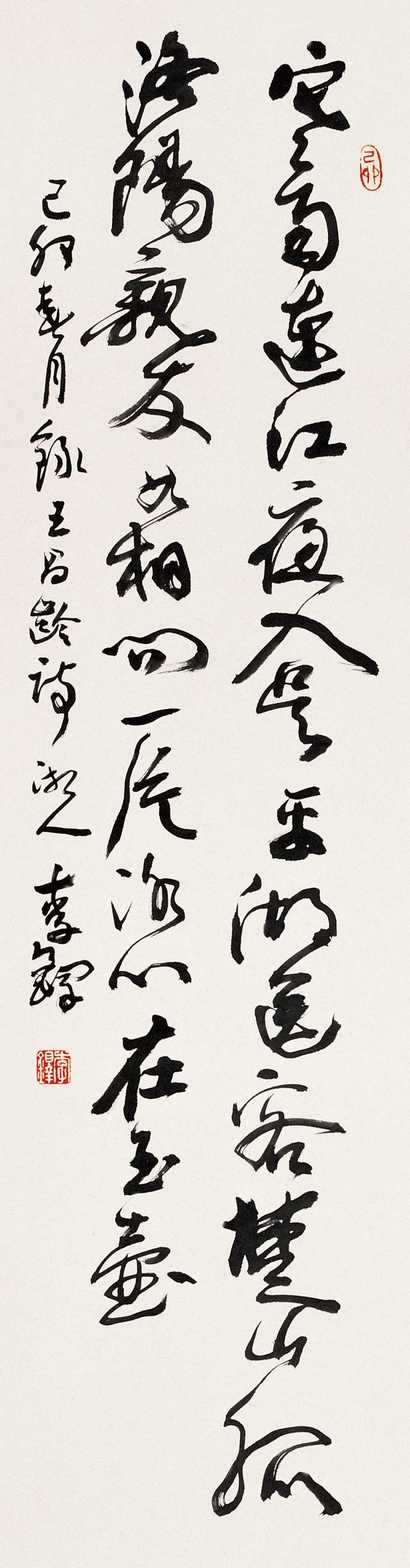 己卯
寒雨連江夜入吳平明送客楚山孤
洛陽親友如相問一片冰心在玉壺
己卯春月錄王昌齡詩湘人李鐸
李鐸